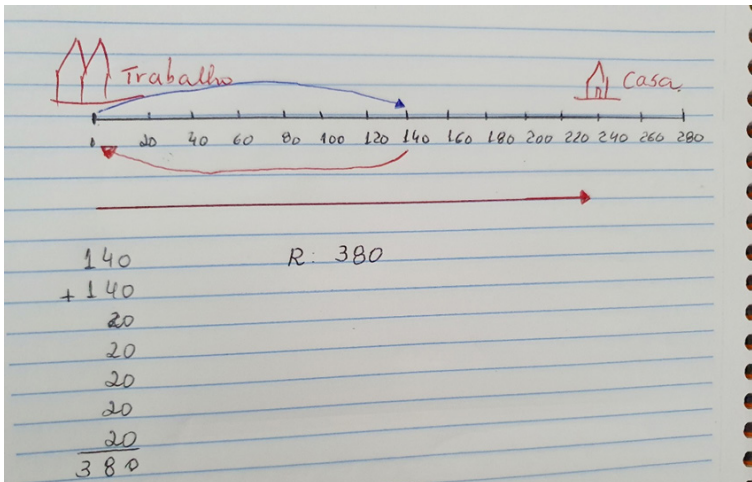 Trabalho
Casa.
0 20 40 60 80 100 120 140 160 180 200 220 240 260 280
140 R: 380
+ 140
20
20
20
20
20
380